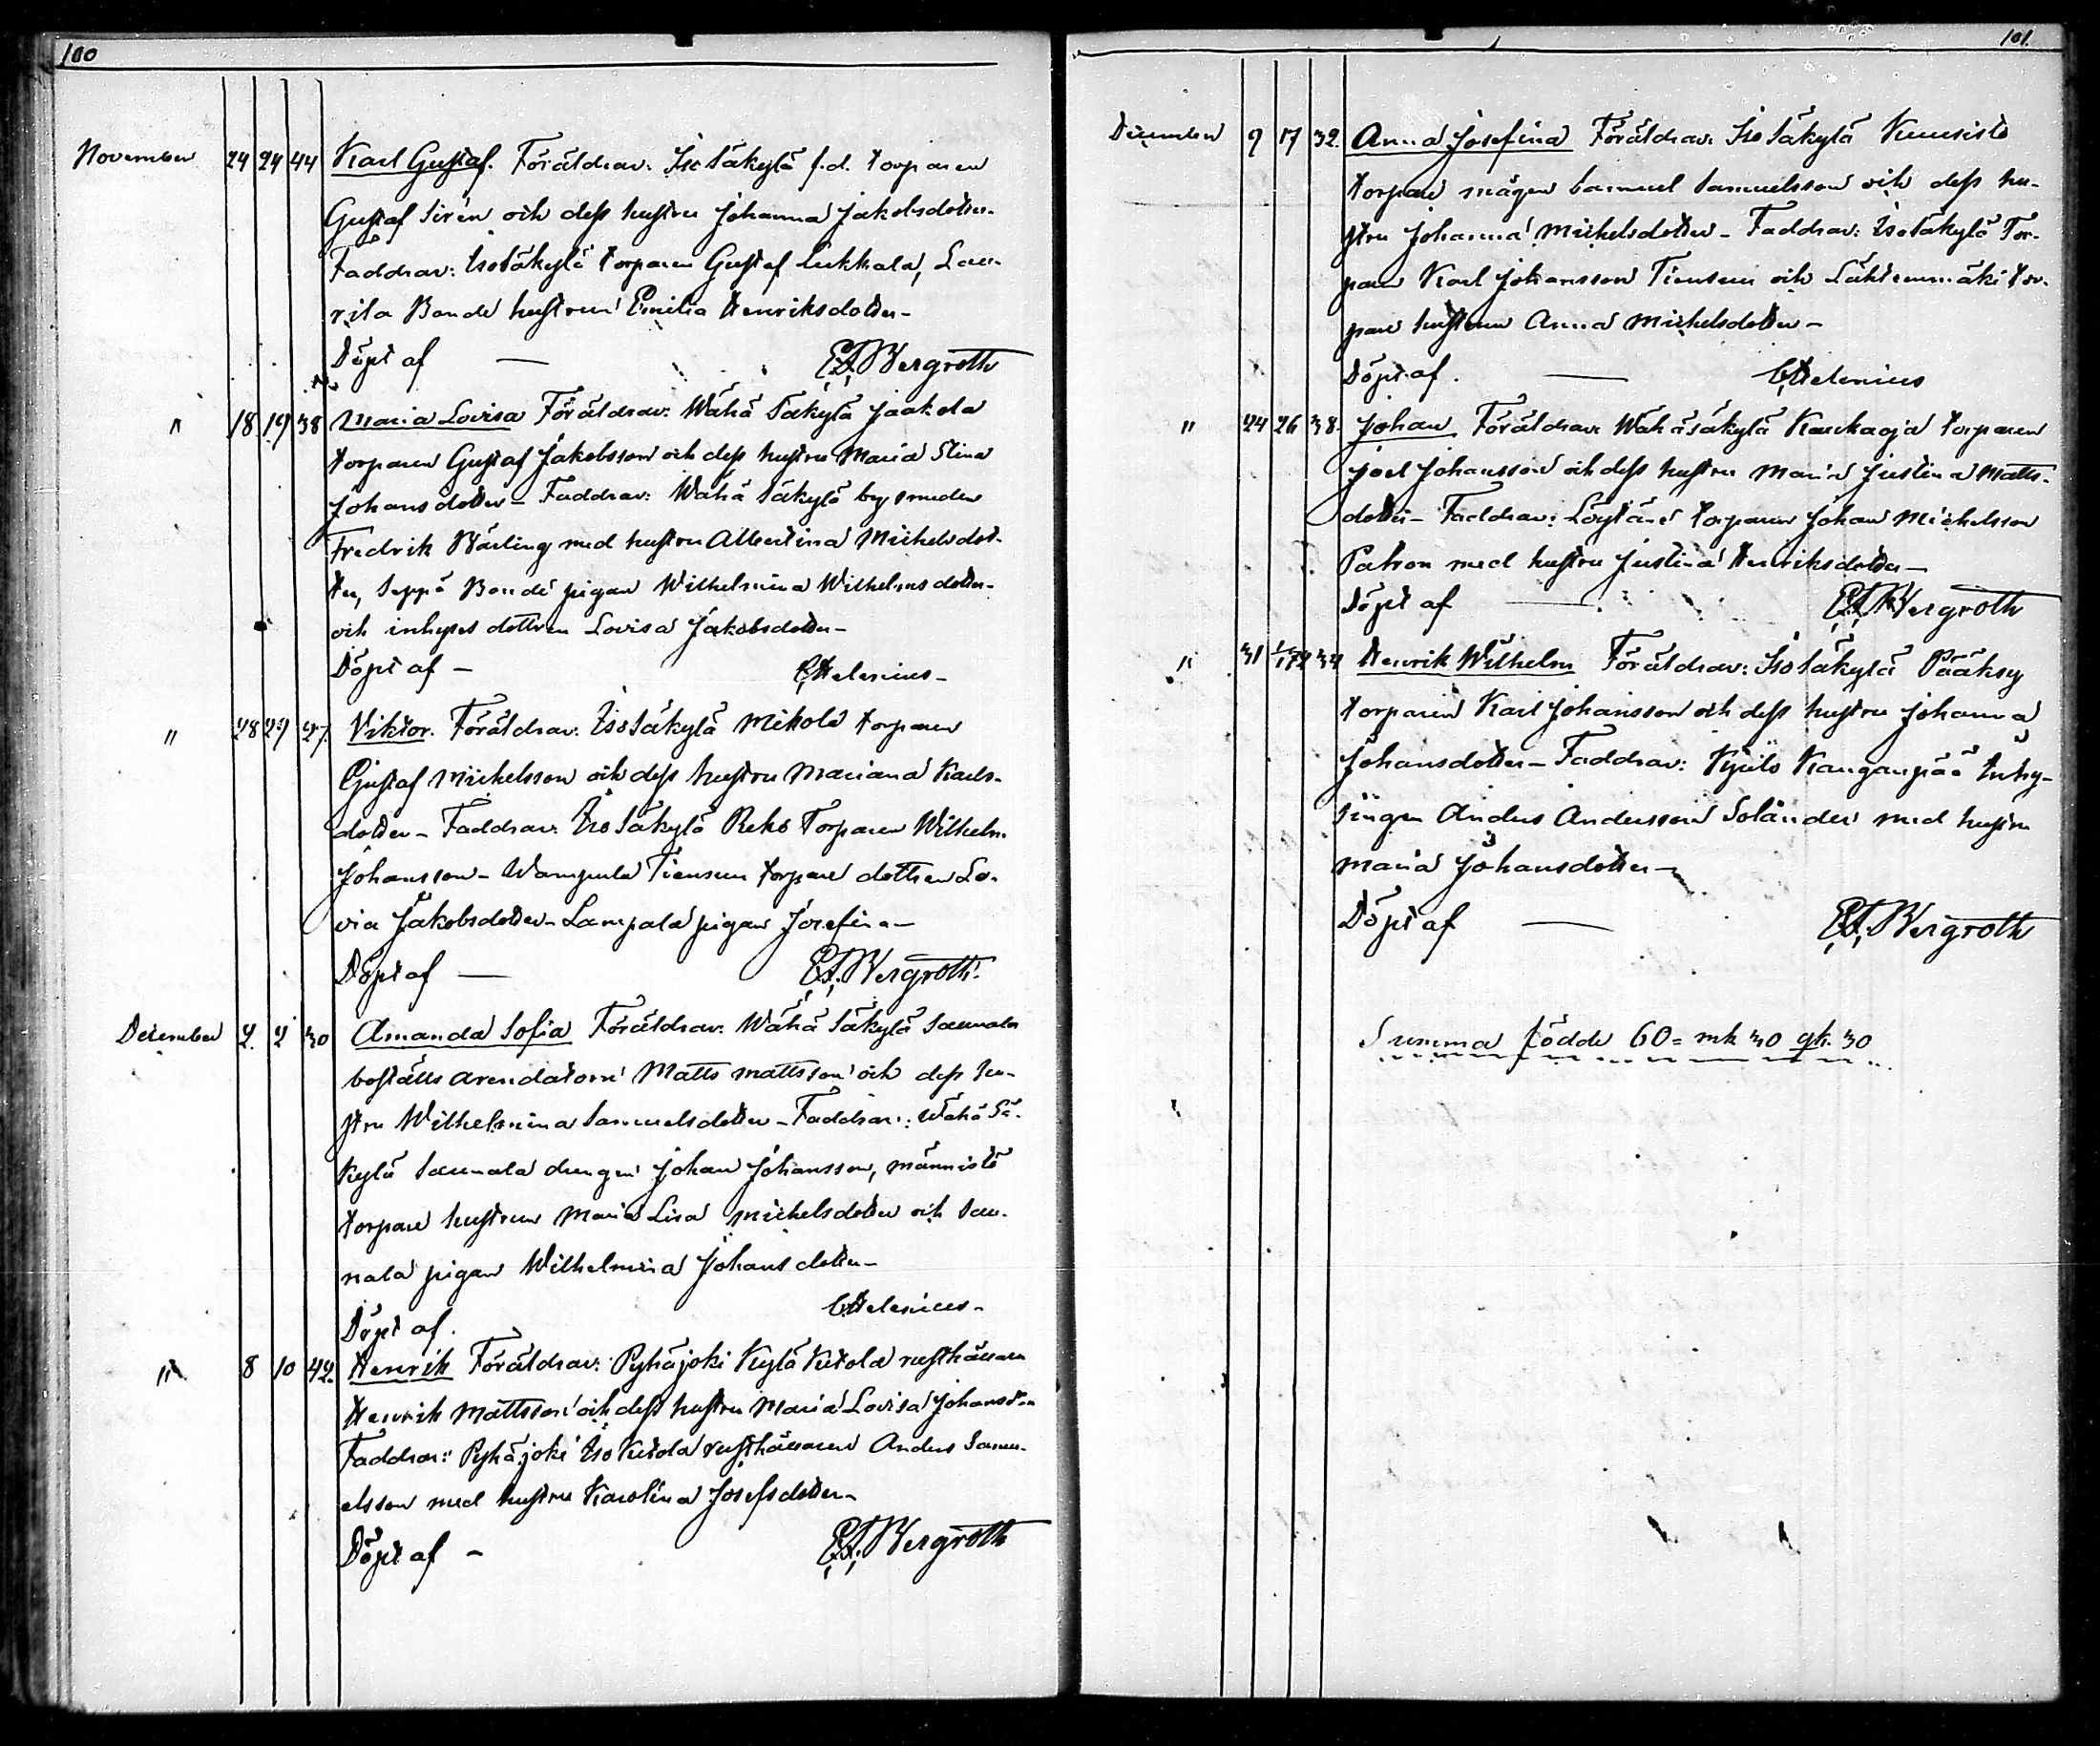 100
November 24 24 44 Karl Gustaf. Föräldrar: Iso Säkylä f.d. torparen
Gustaf Sirén och dess hustru Johanna Jakobsdotter.
Faddrar: Iso Säkylä torparen Gustaf Lukkala, Lau-
rila Bonde hustrun Emilia Henriksdotter –
Döpt af — E.A. Bergroth
" 18 19 38 Maria Lovisa Föräldrar: Wähä Säkylä Jaakola
torparen Gustaf Jakobsson och dess hustru Maria Stina
Johansdotter – Faddrar: Wähä Säkylä by smeden
Fredrik Wärling med hustru Albertina Michelsdot-
ter, Seppä Bonde pigan Wilhelmina Wilhelmsdotter
och inhyses dottren Lovisa Jakobsdotter –
Döpt af – C. Helenius –
" 28 29 27 Viktor. Föräldrar: Iso Säkylä Mikola torparen
Gustaf Michelsson och dess hustru Mariana Karls-
dotter – Faddrar: Iso Säkylä Reko Torparen Wilhelm
Johansson – Wampula Tiensuu torpare dottren Lo-
visa Jakobsdotter – Lampala pigan Josefina –
Döpt af — E.A. Bergroth.
December 2 2 30 Amanda Sofia Föräldrar: Wähä Säkylä Saunala
boställs arendatorn Matts Mattsson och dess hu-
stru Wilhelmina Samuelsdotter – Faddrar: Wähä Sä-
kylä Saunala drengen Johan Johansson, Männistö
torpare hustrun Maria Lisa Michelsdotter och Sau-
nala pigan Wilhelmina Johansdotter –
Döpt af. C. Helenius –
" 8 10 42 Henrik Föräldrar: Pyhäjoki Kylä Uutola rusthållaren
Henrik Mattsson och dess hustru Maria Lovisa Johansd:r
Faddrar: Pyhäjoki Iso Uutola rusthållaren Anders Samu-
elsson med hustru Karolina Josefsdotter –
Döpt af – E.A. Bergroth
101.
December 9 17 32. Anna Josefina Föräldrar: Iso Säkylä Kuusisto
torpare mågen Samuel Samuelsson och dess hu-
stru Johanna Michelsdotter – Faddrar: Iso Säkylä Tor-
paren Karl Johansson Tiensuu och Lähteenmäki tor-
pare hustrun Anna Michelsdotter –
Döpt af. — C. Helenius
" 24 26 38. Johan Föräldrar: Wähäsäkylä Karhaoja torparen
Joel Johansson och dess hustru Maria Justina Matts-
dotter – Faddrar: Löytäne torparen Johan Michelsson
Patron med hustru Justina Henriksdotter –
Döpt af — E.A. Bergroth
" 31 1/1 74 34 Henrik Wilhelm Föräldrar: Iso Säkylä Pääksy
torparen Karl Johansson och dess hustru Johanna
Johansdotter – Faddrar: Kjulo Kanganpää Inhy-
singen Anders Andersson Solander med hustru
Maria Johansdotter –
Döpt af — E.A. Bergroth
Summa födde 60 = mk 30 qk. 30